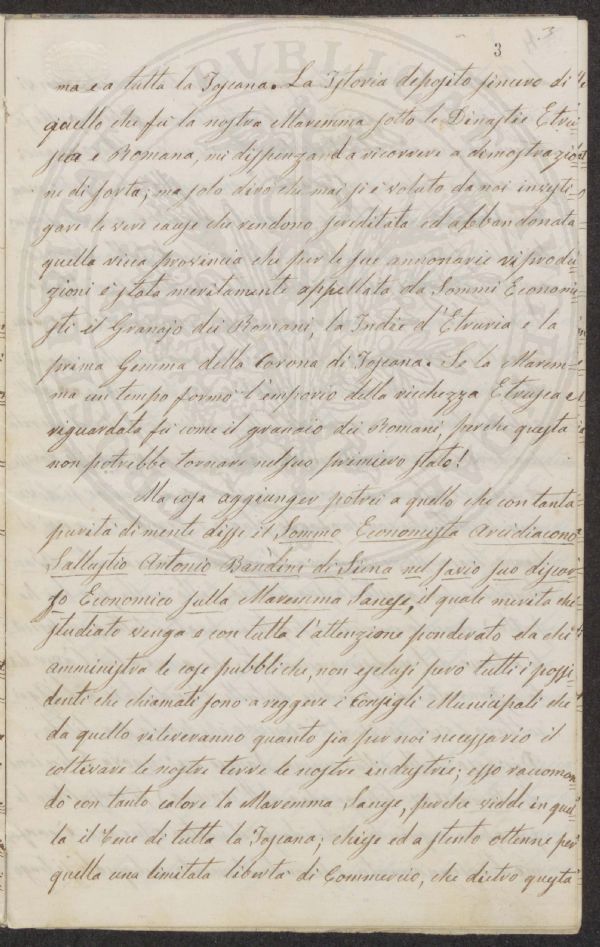 3
ma e a tutta la Toscana. La Istoria deposito sincero di
quello che fù la nostra Maremma sotto le Dinastie Etru=
sca e Romana, mi dispenza da ricorrere a dimostrazio=
ne di sorta; ma solo dirò che mai si è voluto da noi investi=
gare le vere cause che rendono screditata ed abbandonata
quella ricca provincia che per le sue annonarie riprodu=
zioni è stata meritamente appellata da Sommi Economi=
sti il Granajo dei Romani, la Indie d'Etruria e la
prima Gemma della Corona di Toscana. Se la Marem=
ma un tempo formò l'emporio della ricchezza Etrusca e
riguardata fù come il granaio dei Romani, perchè questa
non potrebbe tornare nel suo primiero stato!
Ma cosa aggiunger potrei a quello che con tanta
purità di mente disse il Sommo Economista Arcidiacono
Sallustio Antonio Bandini di Siena nel savio suo discor=
so Economico sulla Maremma Sanese, il quale merita che
studiato venga e con tutta l'attenzione ponderato da chi
amministra le cose pubbliche, non esclusi però tutti i possi=
denti che chiamati sono a reggere i Consigli Municipali che
da quello rileveranno quanto sia per noi necessario il
coltivare le nostre terre le nostre industrie; esso raccoman=
dò con tanto calore la Maremma Sanese, perchè vidde in quel=
la il bene di tutta la Toscana; chiese ed a stento ottenne per
quella una limitata libertà di Commercio, che dietro questa